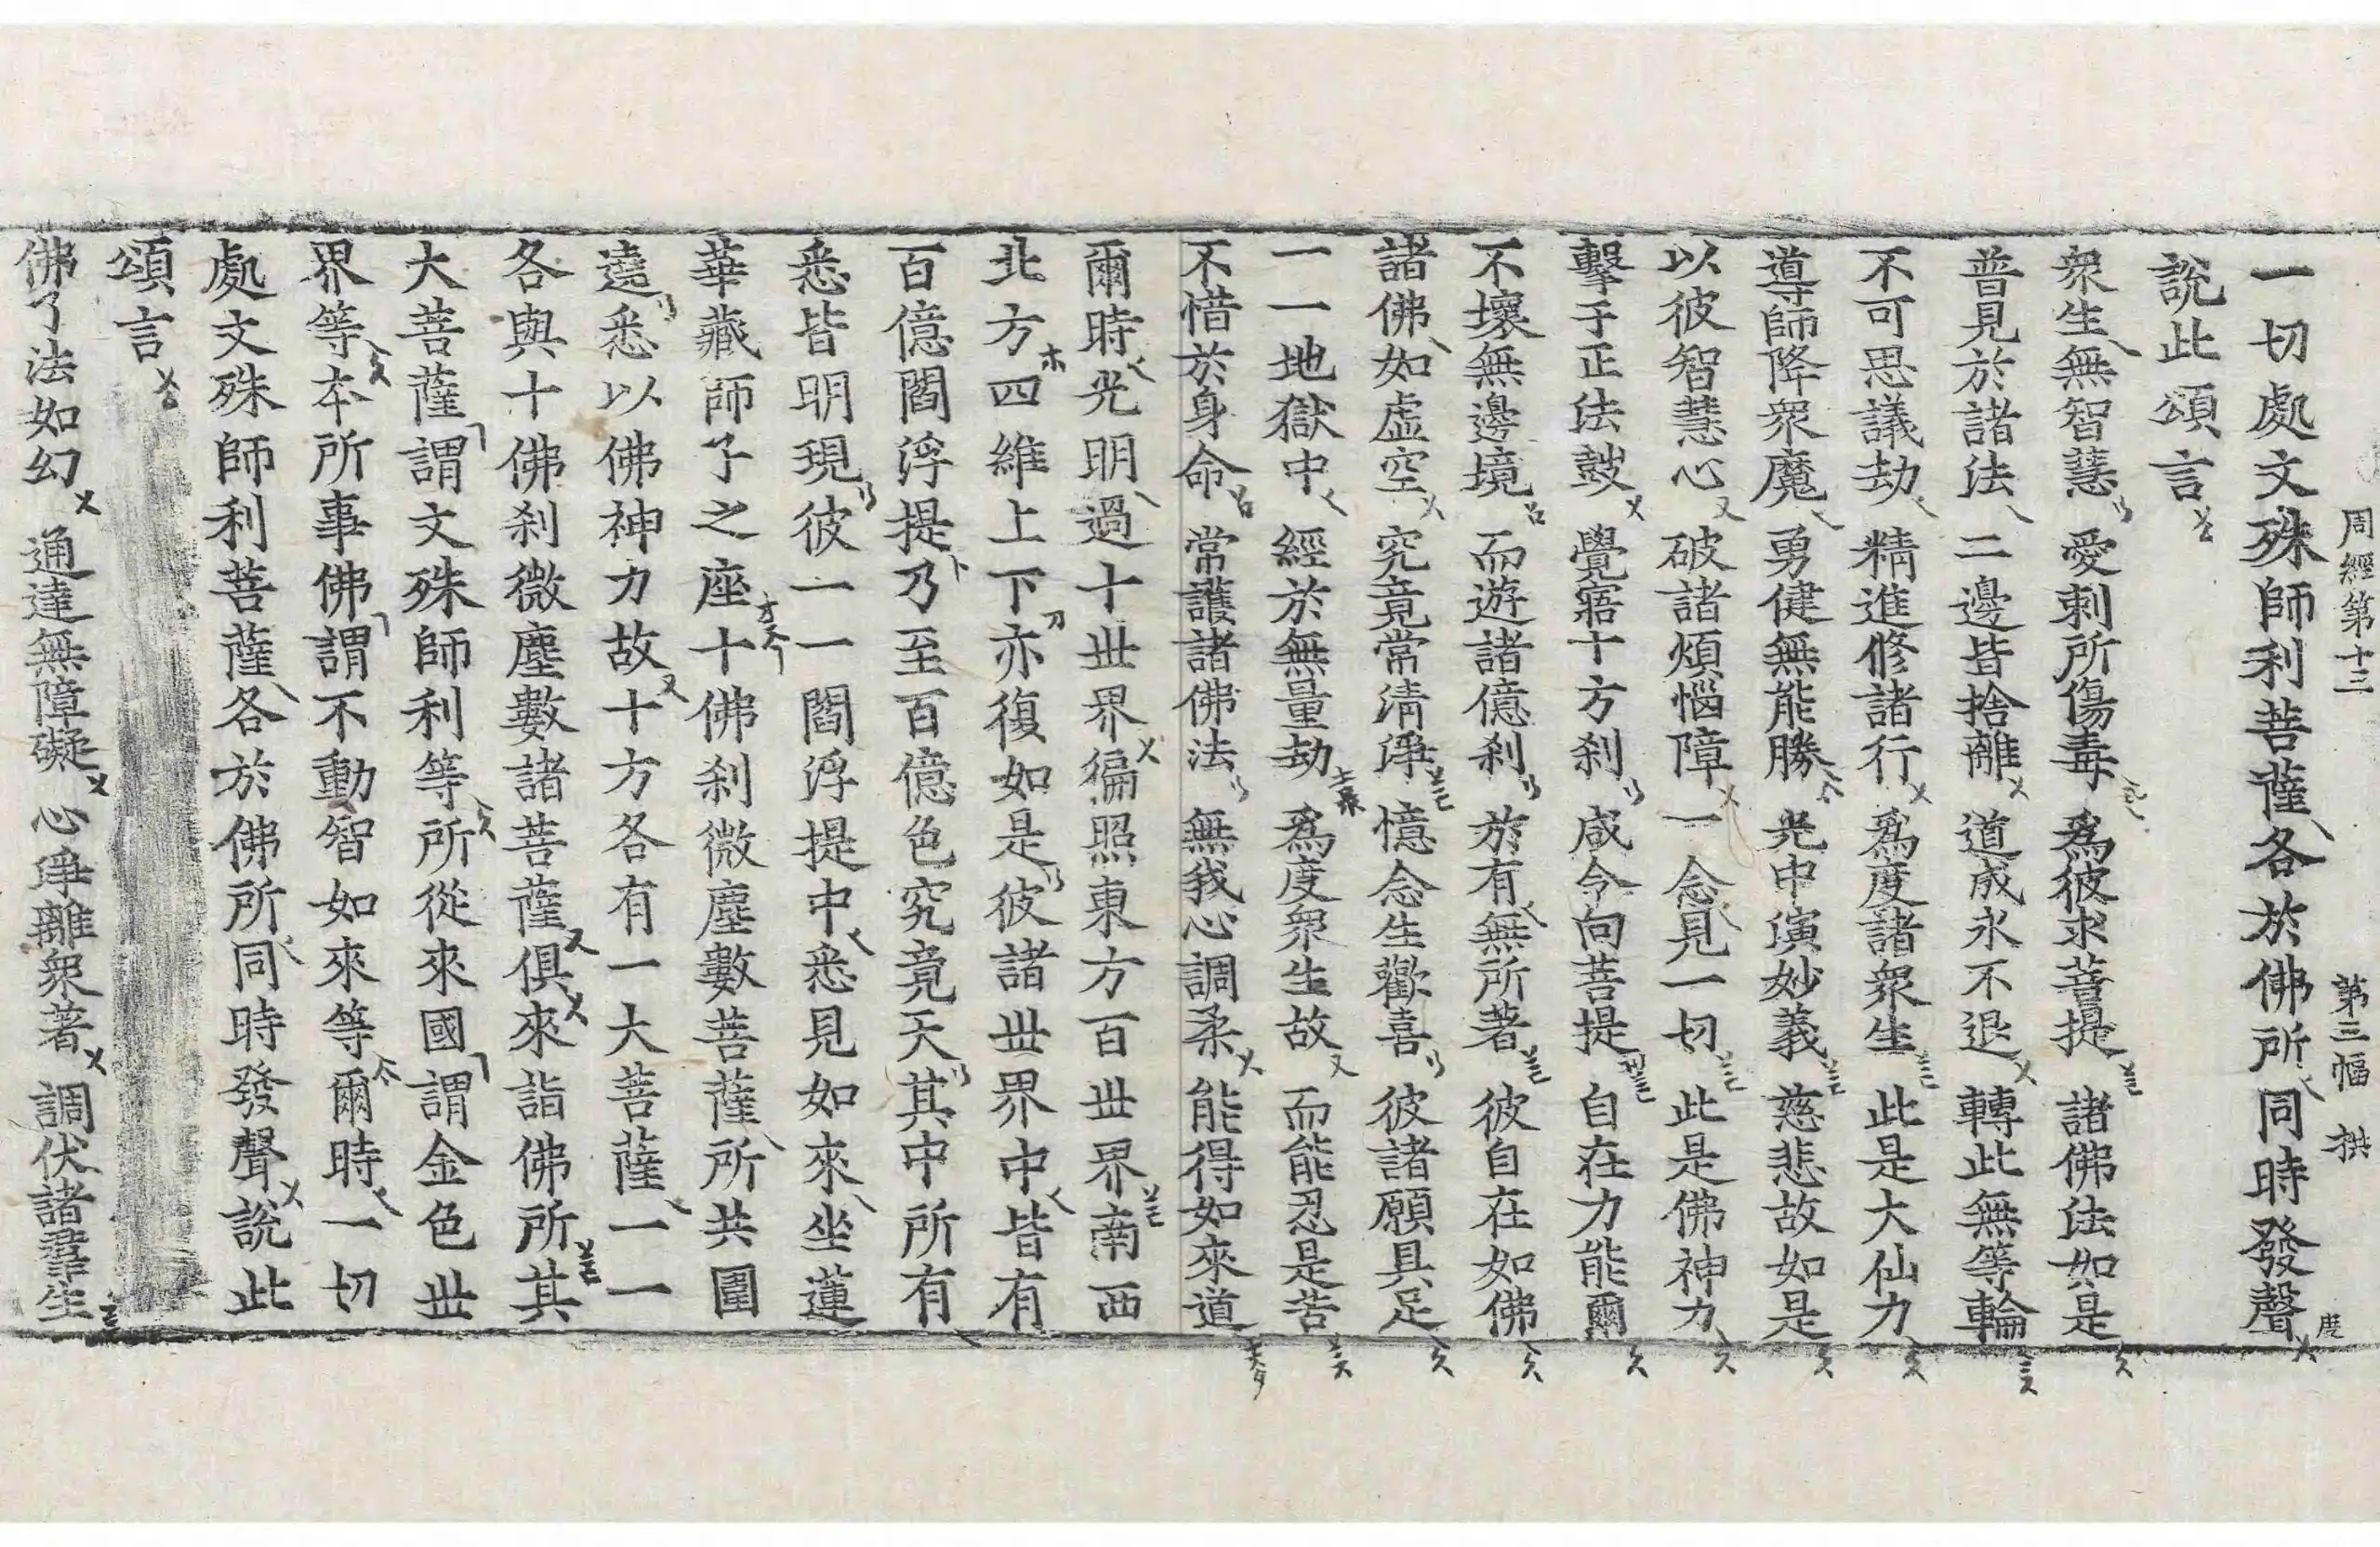 周經第十三 第三幅 拱 度
一切處文殊師利菩薩各於佛所同時發聲
說此頌言
衆生無智慧 愛刺所傷毒 爲彼求菩提 諸佛法如是
普見於諸法 二邊皆捨離 道成永不退 轉此無等輪
不可思議劫 精進修諸行 爲度諸衆生 此是大仙力
導師降衆魔 勇健無能勝 光中演妙義 慈悲故如是
以彼智慧心 破諸煩惱障 一念見一切 此是佛神力
擊于正法鼓 覺寤十方刹 咸令向菩提 自在力能爾
不壞無邊境 而遊諸億刹 於有無所著 彼自在如佛
諸佛如虛空 究竟常淸淨 憶念生歡喜 彼諸願具足
一一地獄中 經於無量劫 爲度衆生故 而能忍是苦
不惜於身命 常護諸佛法 無我心調柔 能得如來道
爾時光明過十世界徧照東方百世界南西
北方四維上下亦復如是彼諸世界中皆有
百億閻浮提乃至百億色究竟天其中所有
悉皆明現彼一一閻浮提中悉見如來坐蓮
華藏師子之座十佛刹微塵數菩薩所共圍
遶悉以佛神力故十方各有一大菩薩一一
各與十佛刹微塵數諸菩薩俱來詣佛所其
大菩薩謂文殊師利等所從來國謂金色世
界等本所事佛謂不動智如來等爾時一切
處文殊師利菩薩各於佛所同時發聲說此
頌言
佛了法如幻 通達無障礙 心淨離衆著 調伏諸羣生